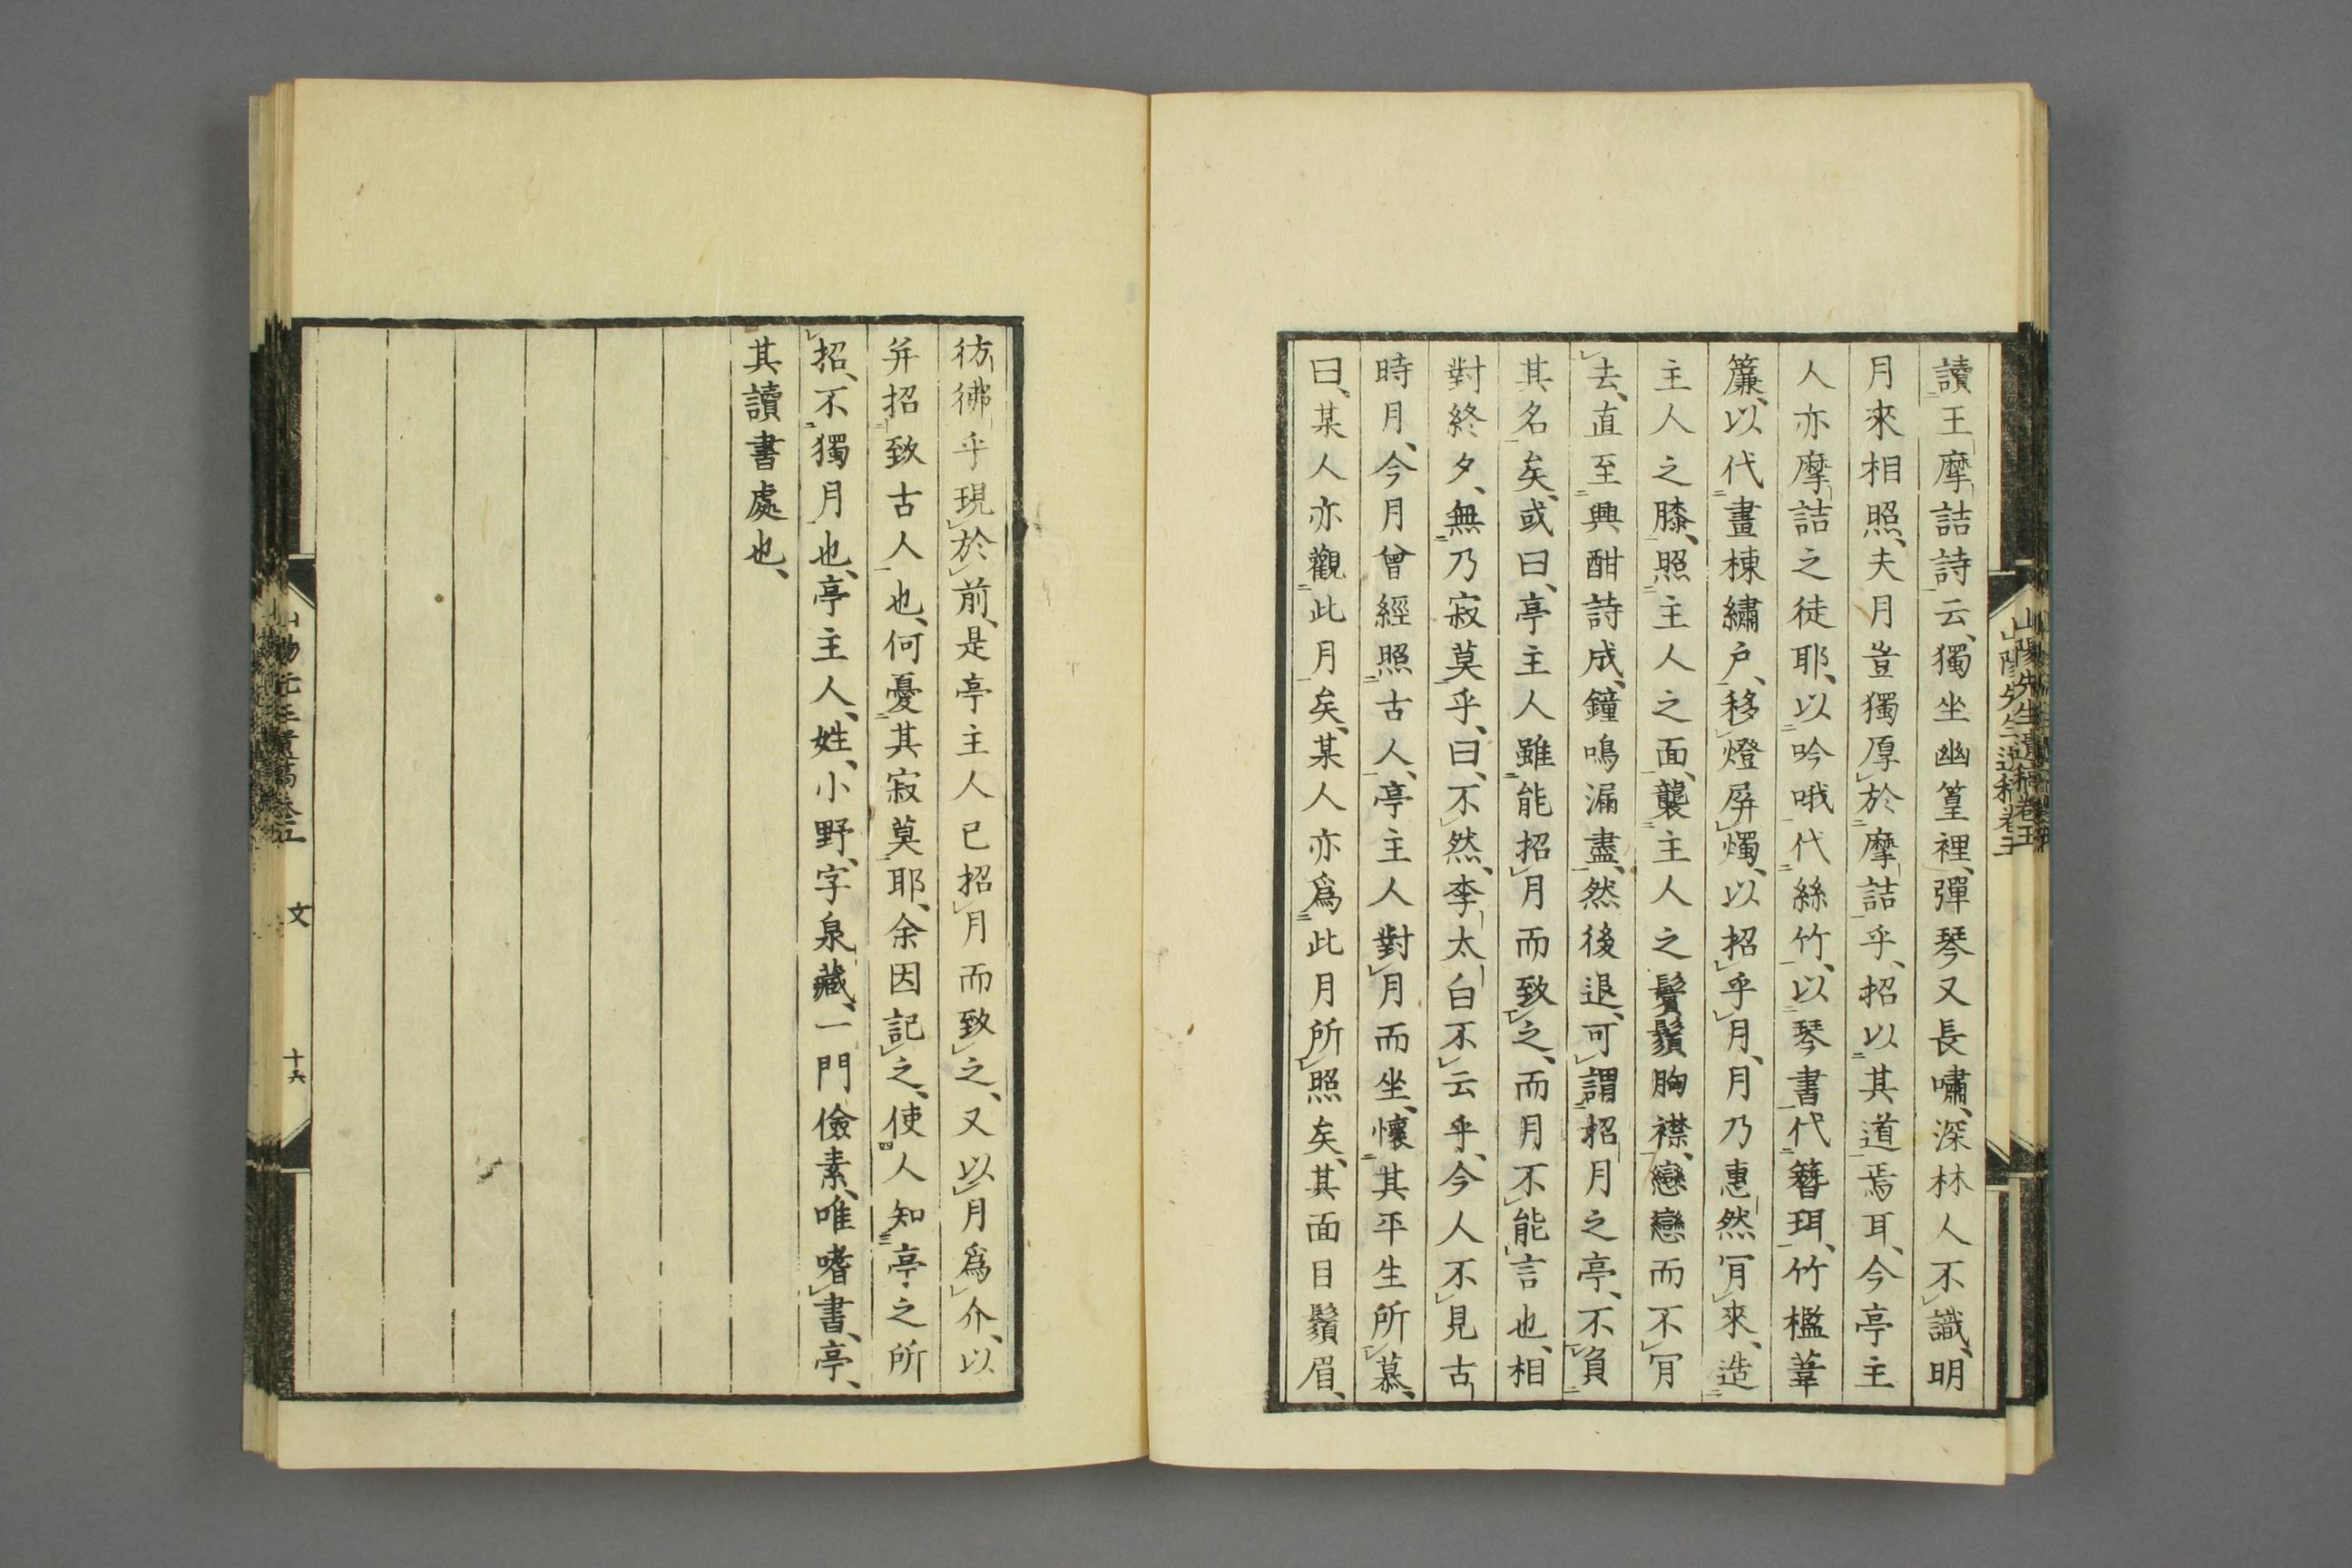 讀王摩詰詩云、獨坐幽篁裡、彈琴又長嘯、深林人不識、明
月來相照、夫月豈獨厚於摩詰乎、招以其道焉耳、今亭主
人亦摩詰之徒耶、以吟哦代絲竹、以琴書代簪珥、竹檻葦
簾、以代畫棟繡戶、移燈屏燭、以招乎月、月乃惠然肎來、造
主人之膝、照主人之面、襲主人之鬢鬚胸襟、戀戀而不肎
去、直至興酣詩成、鐘鳴漏盡、然後退、可謂招月之亭、不負
其名矣、或曰、亭主人雖能招月而致之、而月不能言也、相
對終夕、無乃寂莫乎、曰、不然、李太白不云乎、今人不見古
時月、今月曾經照古人、亭主人對月而坐、懷其平生所慕、
曰、某人亦觀此月矣、某人亦爲此月所照矣、其面目鬚眉、
彷彿乎現於前、是亭主人已招月而致之、又以月爲介、以
并招致古人也、何憂其寂莫耶、余因記之、使人知亭之所
招、不獨月也、亭主人、姓、小野、字泉藏、一門儉素、唯嗜書、亭、
其讀書處也、
山陽先生遺稿卷五
文
十六